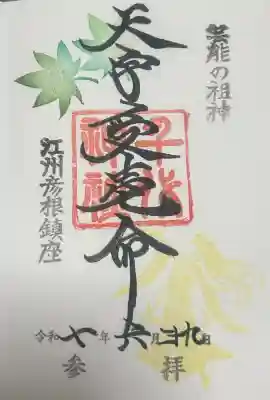 芸能の祖神
天宇受売命
千代
神社
江州彦根鎮座
令和七年六月廿九日
参拝